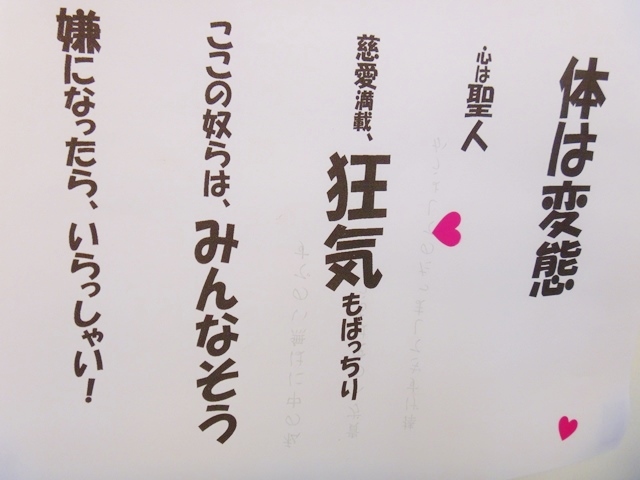 体は変態
心は聖人
慈愛満載、狂気もばっちり
ここの奴らは、みんなそう
嫌になったら、いらっしゃい！